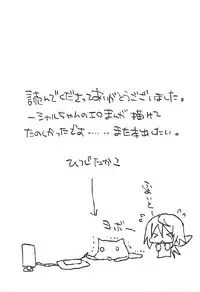 読んでくださってありがとうございました。
シャルちゃんのエロまんが描けて
たのしかったです……また本出したい。
ひつじたかこ
ヨボー